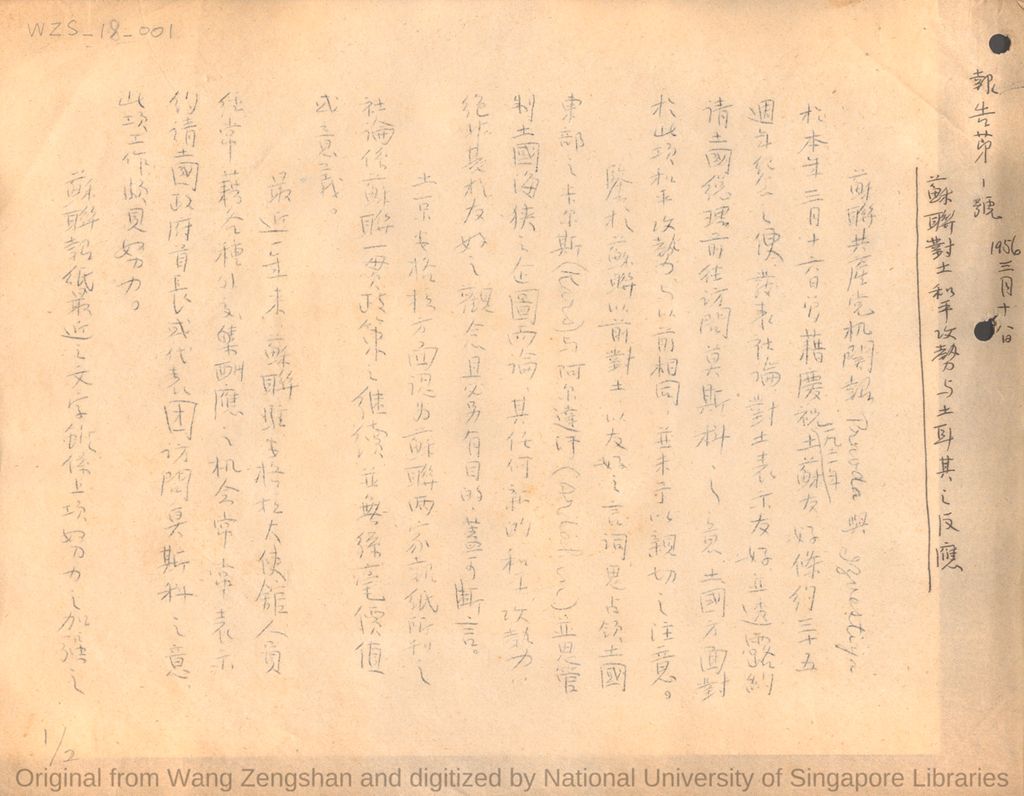 WZS_18_001
報告第1號
1956
三月十八日
蘇聯對土和平攻勢与土耳其之反應
蘇聯共產党机関報 Pravda 與 Izvestiya
於本年三月十六日曾藉慶祝一九二一年土蘇友好條約三十五
週年紀念之便發表社論對土表示友好並透露約
请土國總理前往訪問莫斯科之意土國方面對
於此項和平攻勢与以前相同，並未予以親切之注意。
鑒於蘇聯以前對土以友好之言詞思占領土國
東部之卡尔斯(Kars)与阿尔達汗(Ardahan)並思管
制土國海狭之企圖而論，其任何新的和平攻勢
絕非基於友好之觀念且必另有目的，蓋可断言。
土京安格拉方面認为蘇聯兩家報紙所刊之
社論係蘇聯一貫政策之继续並無絲毫價值
或意義。
最近一年来蘇聯駐安格拉大使舘人員
經常藉各種外交集酬應之机会常常表示
約请土國政府首長或代表团訪問莫斯科之意
此項工作頗具努力。
蘇聯報紙最近之文字雖係上項努力之加强之
1/2
Original from Wang Zengshan and digitized by National University of Singapore Libraries